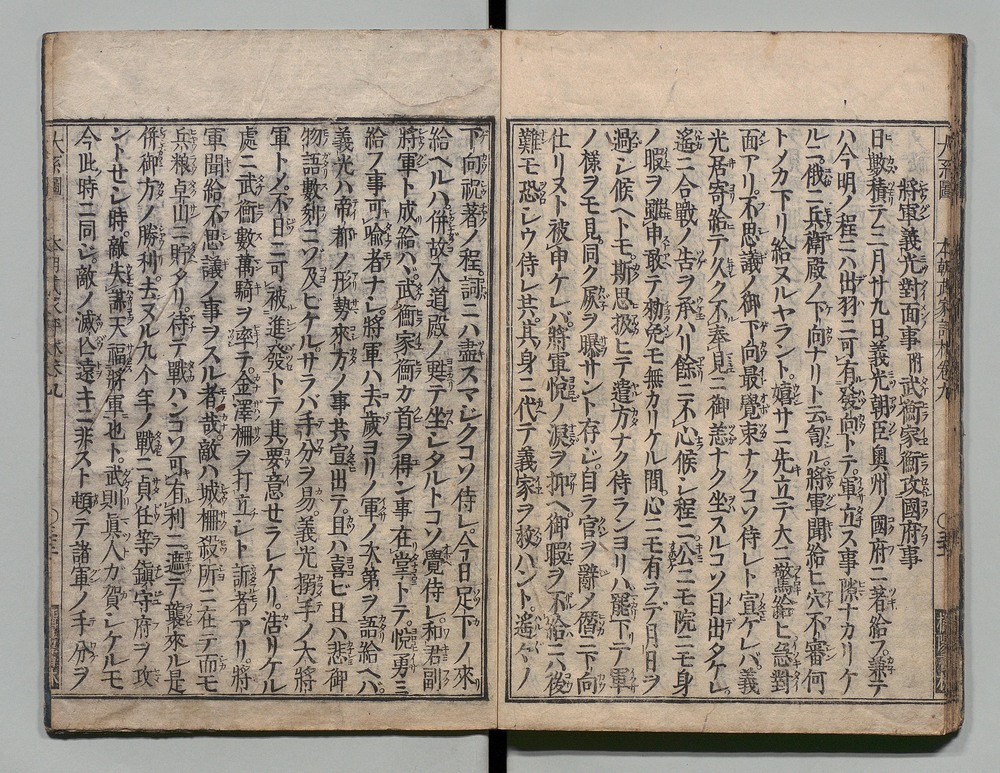 將軍義光對面事附武衡家衡攻國府事
日數積テ二月廿九日義光朝臣奥州ノ國府ニ著給フ兼テ
ハ今明ノ程ニハ出羽ニ可有發向トテ軍立ス事隙ナカリケ
ルニ俄ニ兵衛殿ノ下向ナリト云旬ル將軍聞給ヒ穴不審何
トノカ下リ給スルヤラント嬉サニ先立テ大ニ驚給ヒ急對
面アリ不思議ノ御下向最覺束ナクコソ侍レト宣ケレバ義
光居寄給テ久ク不奉見ニ御恙ナク坐スルコソ目出タケレ
遙ニ合戰ノ告ヲ承ハリ餘ニ不心候シ程ニ公ニモ院ニモ身
ノ暇ヲ雖申敢テ勅免モ無カリケル間心ニモ有ラデ月日ヲ
過シ候ヘトモ斯思扱ヒテ遣方ナク侍ランヨリハ罷下テ軍
ノ様ヲモ見同ク屍ヲ曝サント存ジ自ラ官ヲ辭メ潛ニ下向
仕リヌト被申ケレバ將軍悅ノ淚ヲ抑ヘ御暇ヲ不給ニハ後
難モ恐シウ侍レ共其身ニ代テ義家ヲ救ハント遙々ノ
下向祝著ノ程詞ニハ盡スマジクコソ侍レ今日足下ノ來
給ヘルハ併故入道殿ノ甦テ坐シタルトコソ覺侍レ和君副
將軍ト成給ハヾ武衡家衡カ首ヲ得ン事在掌トテ悅勇
給フ事可喩者ナシ將軍ハ去歲ヨリノ軍ノ次第ヲ語給ヘバ
義光ハ帝都ノ形勢來方ノ事共宣出テ且ハ喜ビ且ハ悲御
物語數刻ニソ及ヒケルサラバ手分ヲ易義光搦手ノ大將
軍トノ不日ニ可被進發トテ其要意セラレケリ浩リケル
處ニ武衡數萬騎ヲ率テ金澤柵ヲ打立シト訴者アリ將
軍聞給不思議ノ事ヲスル者哉敵ハ城柵殺所ニ在テ而モ
兵粮卓山ニ貯タリ待テ戰ハンコソ可有利ニ遮テ襲來ル是
併御方ノ勝利去ヌル九个年ノ戰ニ貞任等鎮守府ヲ攻
ントセシ時敵失謀天福將軍也ト武則眞人カ賀シケルモ
今此時ニ同シ敵ノ滅亡遠キニ非スト頓テ諸軍ノ手分ヲ